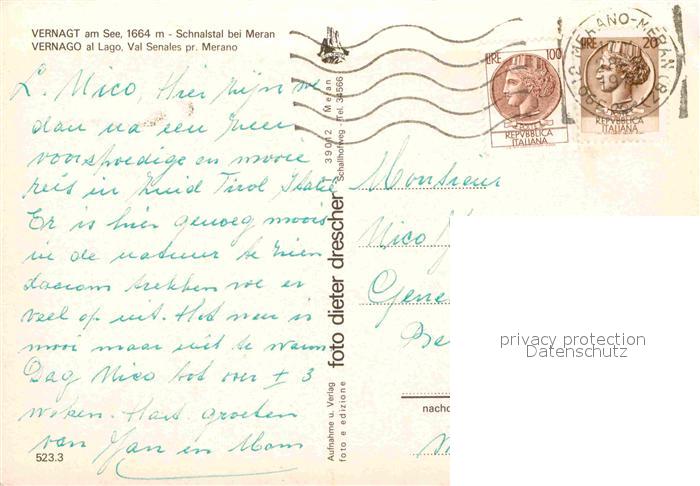 VERNAGT am See, 1664 m - Schnalstal bei Meran
VERNAGO al Lago, Val Senales pr. Merano
L. Nico Hier zijn we
dan na een zeer
voorspoedige en mooie
reis in Zuid Tirol Italië
Er is hier genoeg moois
in de natuur te zien
daarom trekken we er
veel op uit. Het weer is
mooi maar iets te warm
Dag Nico tot over ± 3
weken. Hart. groeten
van Jan en Mam
523.3
39012 Meran
Schallhofweg - Tel. 34566
foto dieter drescher
Aufnahme u. Verlag
foto e edizione
LIRE 100
REPVBBLICA
ITALIANA
LIRE 200
REPVBBLICA
ITALIANA
39012 MERANO-MERAN (BZ)
Monsieur
Nico
Gene
Be
nachd
privacy protection
Datenschutz